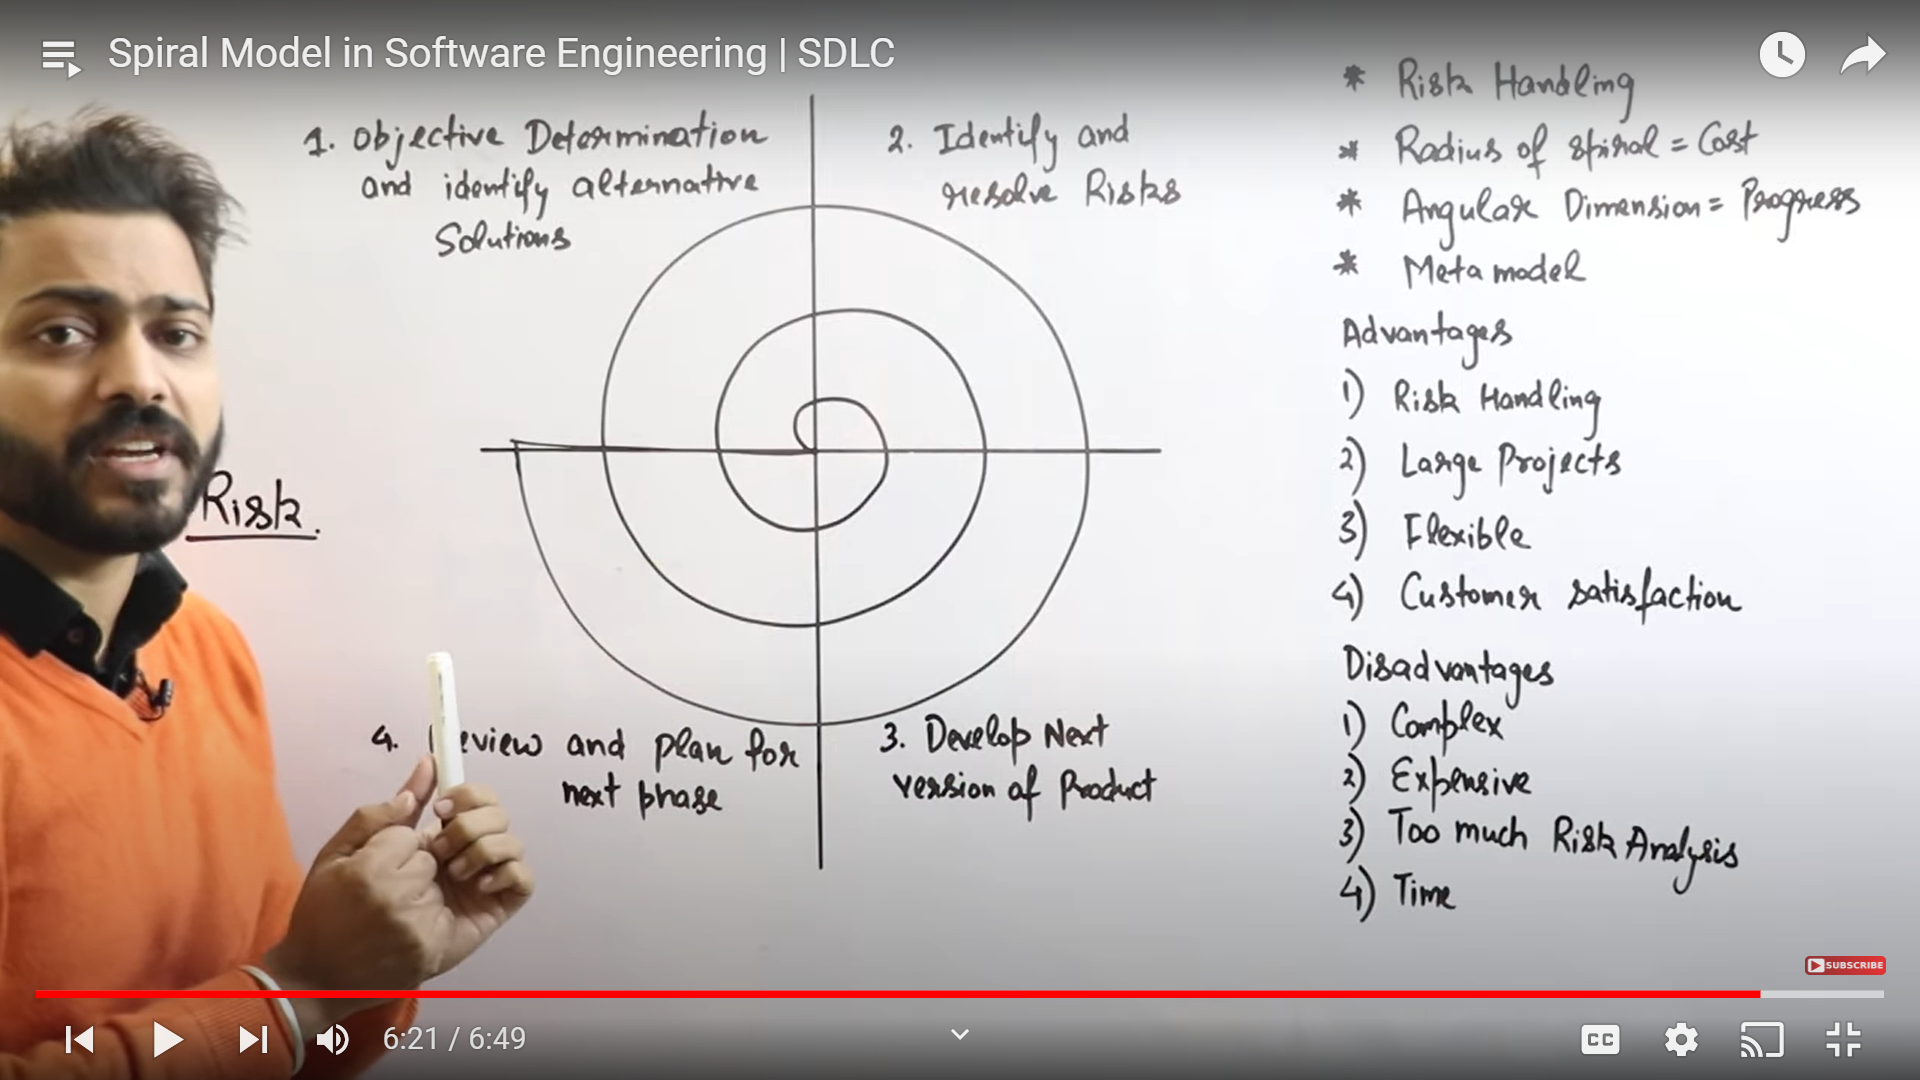 Spiral Model in Software Engineering | SDLC
1. Objective Determination
and identify alternative
Solutions
2. Identify and
resolve Risks
Risk.
4. eview and plan for
next phase
3. Develop Next
version of Product
* Risk Handling
* Radius of spiral = Cost
* Angular Dimension = Progress
* Meta model
Advantages
1) Risk Handling
2) Large Projects
3) Flexible
4) Customer satisfaction
Disadvantages
1) Complex
2) Expensive
3) Too much Risk Analysis
4) Time
SUBSCRIBE
6:21 / 6:49
CC